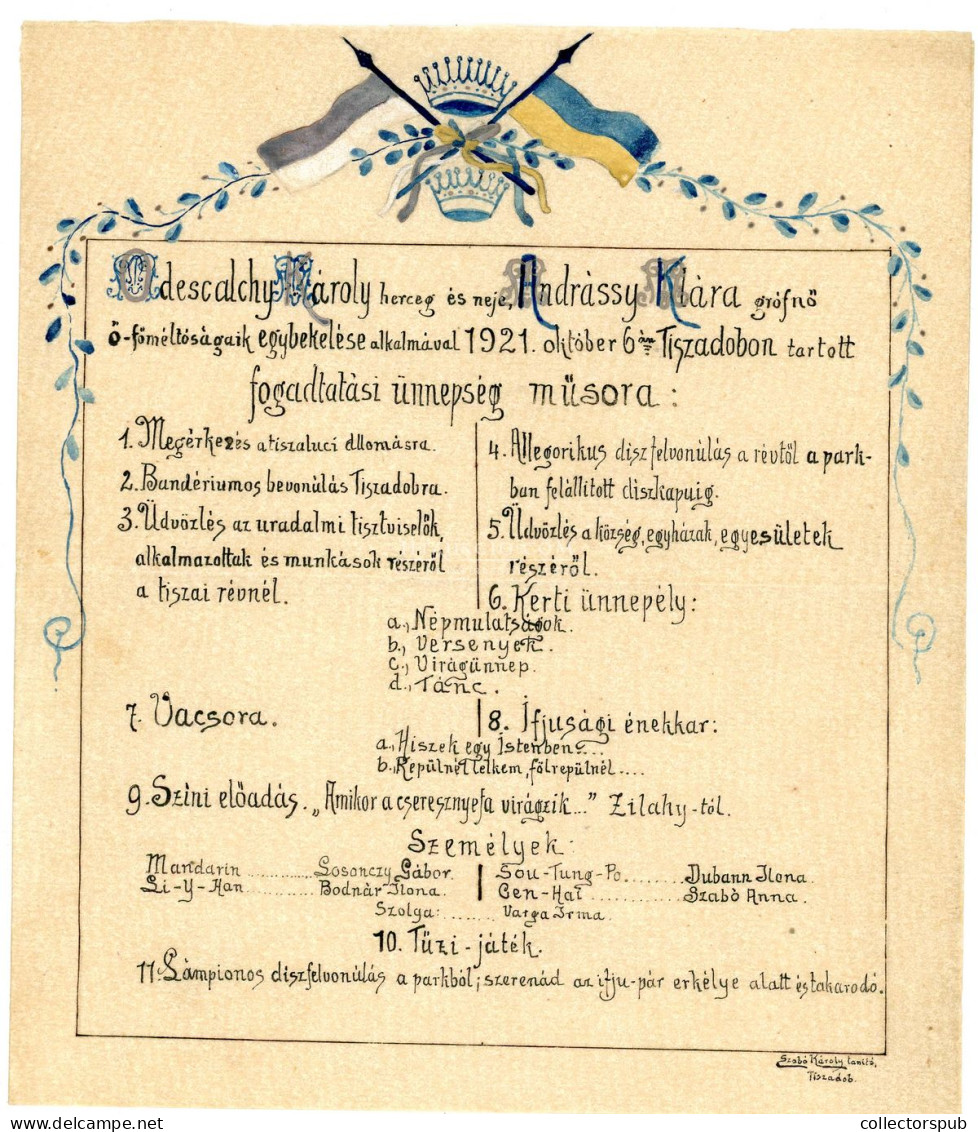 Odescalchy Károly herceg és neje, Andrássy Klára grófnő
ő-főméltóságaik egybekelése alkalmával 1921. október 6án Tiszadobon tartott
fogadtatási ünnepség műsora:
1. Megérkezés a tiszaluci állomásra.
2. Bandériumos bevonúlás Tiszadobra.
3. Üdvözlés az uradalmi tisztviselők,
alkalmazottak és munkások részéről
a tiszai révnél.
4. Allegorikus diszfelvonúlás a révtől a park-
ban felállított diszkapuig.
5. Üdvözlés a község, egyházak, egyesületek
részéről.
6. Kerti ünnepély:
a., Népmulatságok.
b., Versenyek.
c., Virágünnep.
d., Tánc.
7. Vacsora.
8. Ifjusági énekkar:
a., Hiszek egy Istenben....
b., Repülnél lelkem, fölrepülnél....
9. Színi előadás. „Amikor a cseresznyefa virágzik..." Zilahy-tól.
Személyek:
Mandarin ............. Losonczy Gábor.
Li-Y-Han ............ Bodnár Ilona.
Sou-Tung-Po ........ Dubann Ilona.
Cen-Hai ............. Szabó Anna.
Szolga: ........ Varga Irma.
10. Tüzi-játék.
11. Lámpionos diszfelvonúlás a parkból; szerenád az ifju-pár erkélye alatt és takarodó.
Szabó Károly tanító,
Tiszadob.
collectorspub